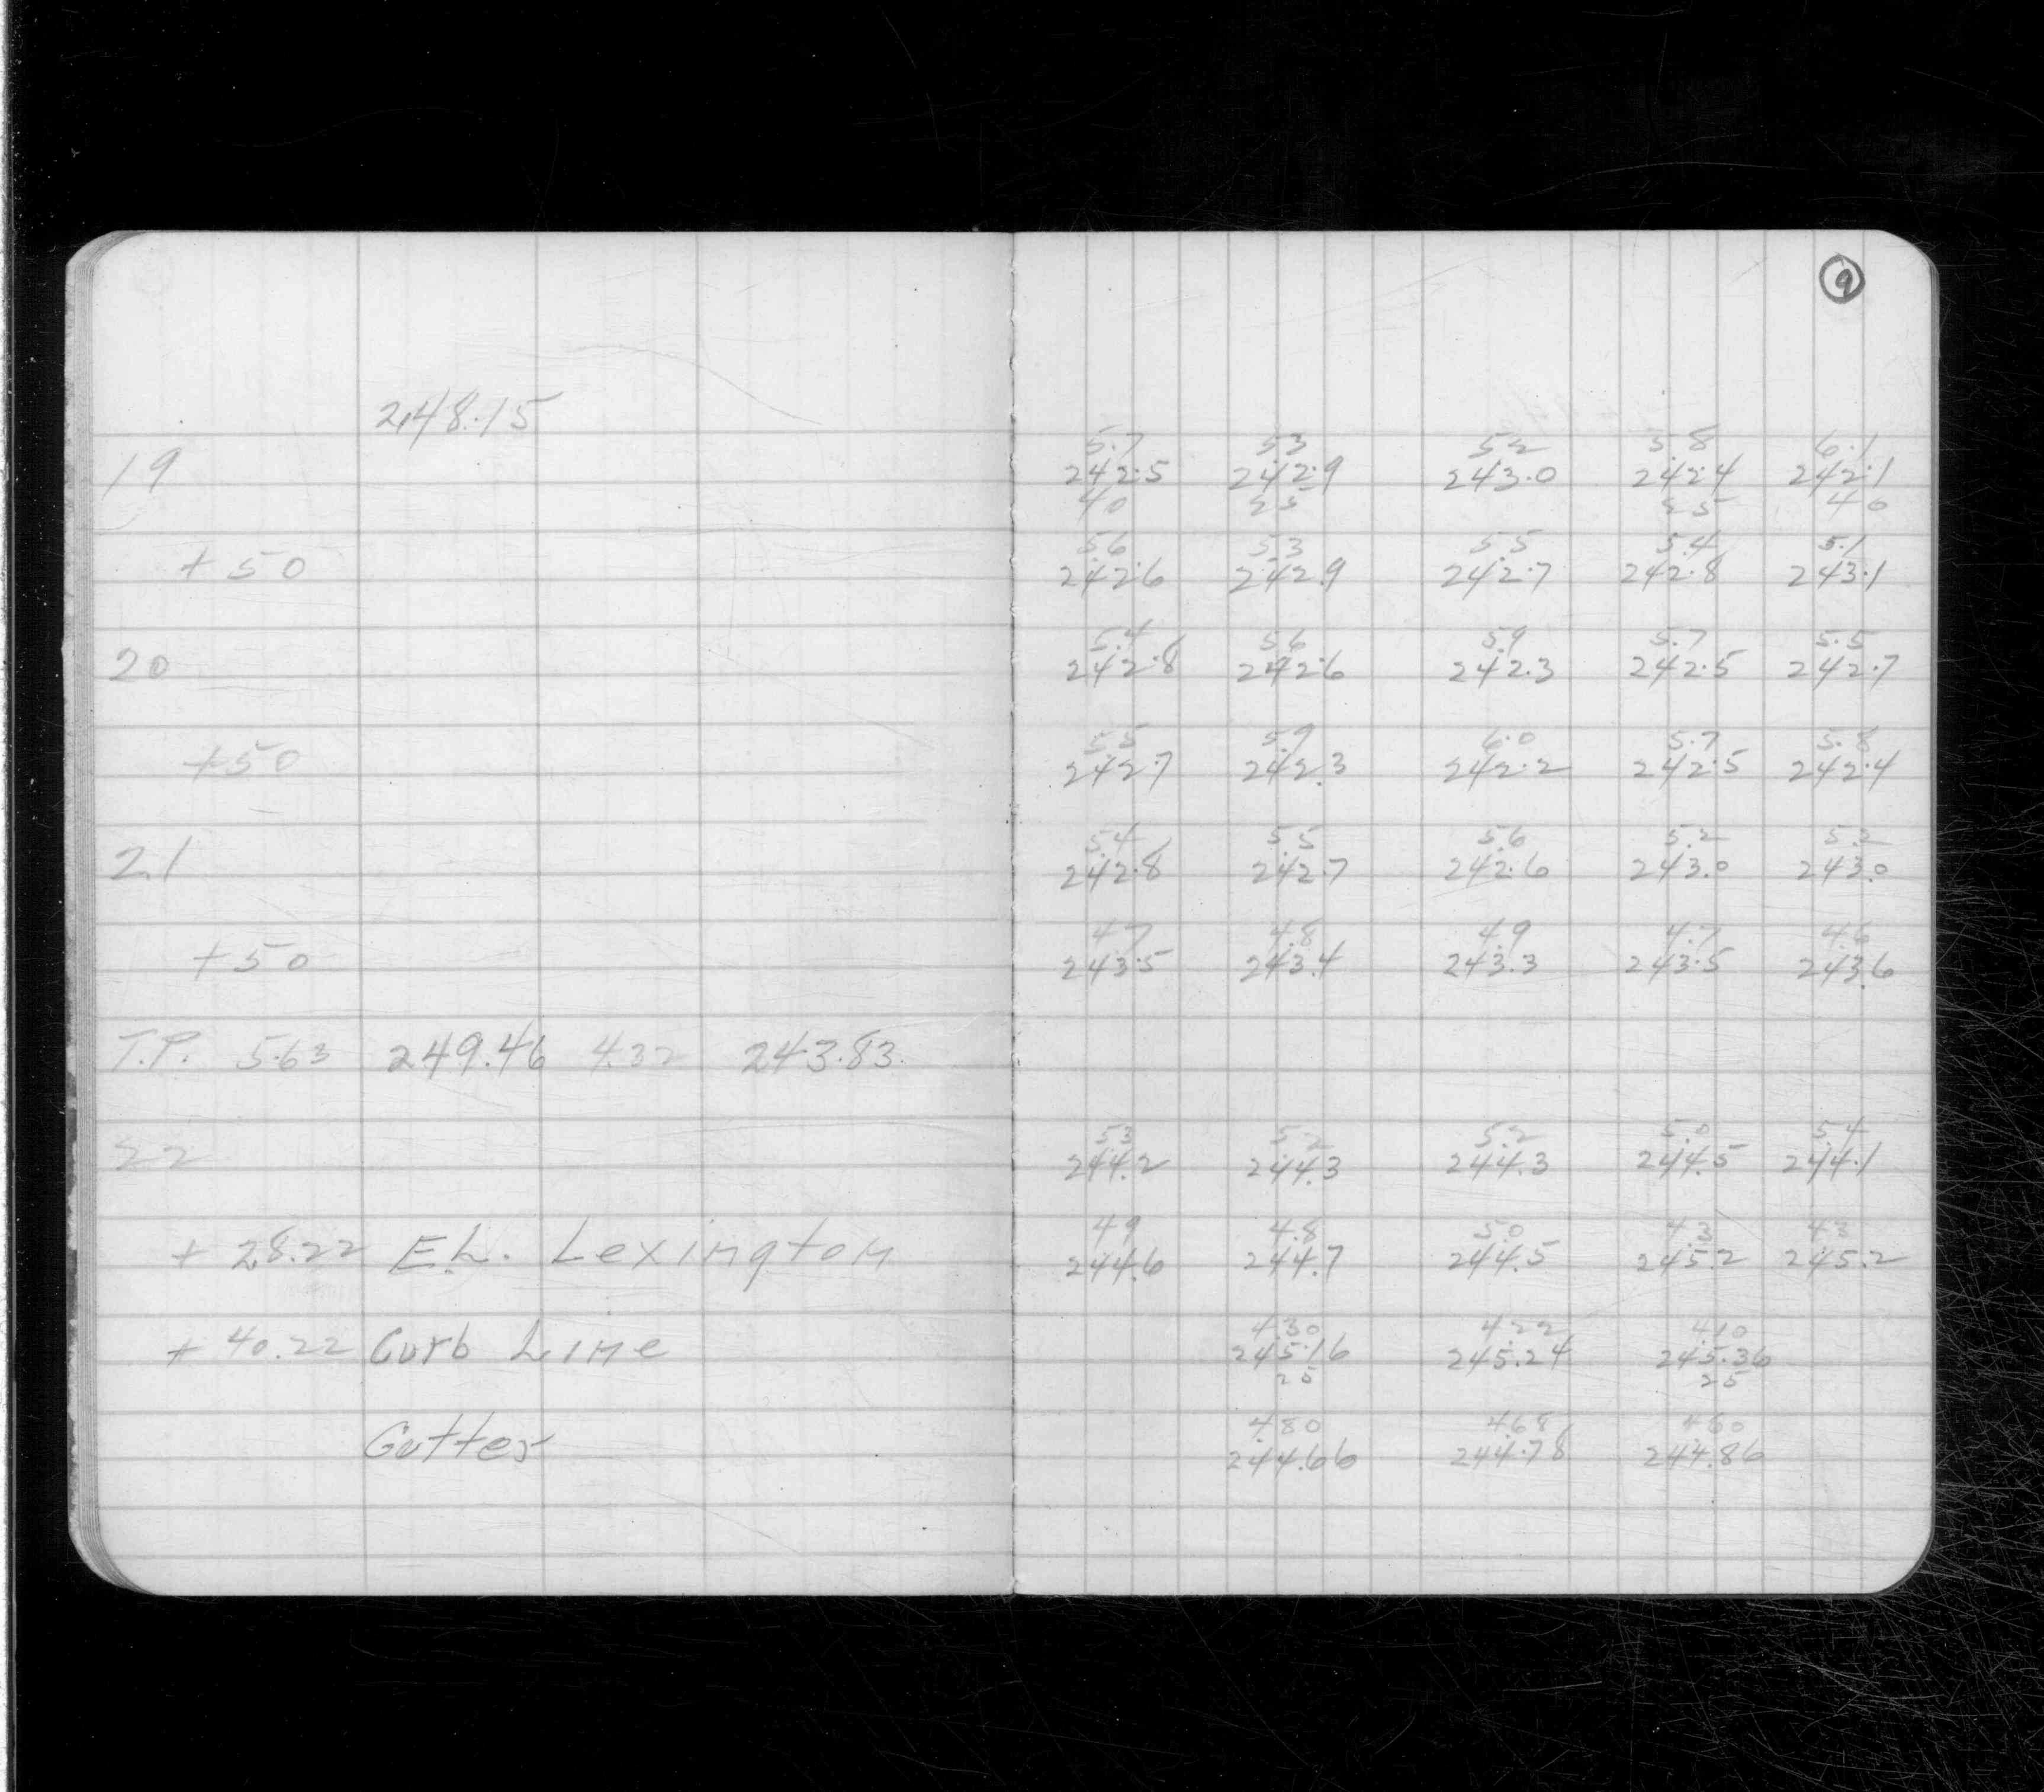 9
248.15
5.7 5.3 5.2 5.8 6.1
19 242.5 242.9 243.0 242.4 242.1
40 25 25 40
5.6 5.3 5.5 5.4 5.1
+50 242.6 242.9 242.7 242.8 243.1
5.4 5.6 5.9 5.7 5.5
20 242.8 242.6 242.3 242.5 242.7
5.5 5.9 6.0 5.7 5.8
+50 242.7 242.3 242.2 242.5 242.4
5.4 5.5 5.6 5.2 5.2
21 242.8 242.7 242.6 243.0 243.0
4.7 4.8 4.9 4.7 4.6
+50 243.5 243.4 243.3 243.5 243.6
T.P. 5.63 249.46 4.32 243.83
5.3 5.2 5.2 5.0 5.4
22 244.2 244.3 244.3 244.5 244.1
4.9 4.8 5.0 4.3 4.3
+ 28.22 E.L. Lexington 244.6 244.7 244.5 245.2 245.2
4.30 4.22 4.10
+ 40.22 Curb Line 245.16 245.24 245.36
25 25
4.80 4.68 4.60
Gutter 244.66 244.78 244.86